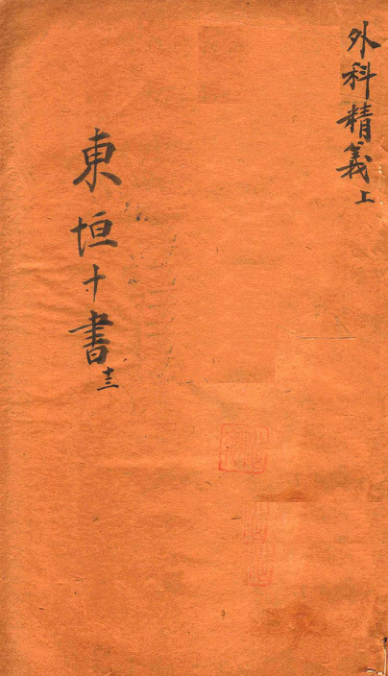 外科精義上
東垣十書
十三